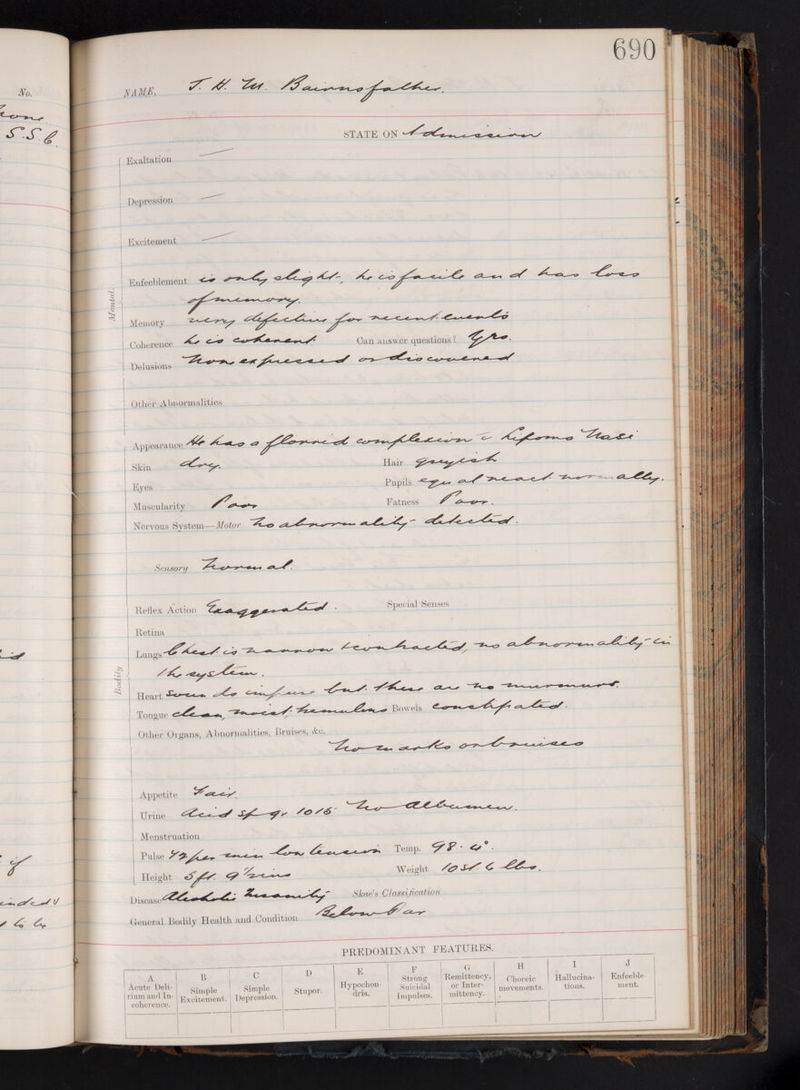 690
No.
None
S.S.C.
NAME, T. H. M. Bairnsfather.
STATE ON Admission
Exaltation —
Depression —
Excitement —
Mental.
Enfeeblement is only slight, he is facile and has loss
of memory.
Memory very defective for recent events
Coherence he is coherent Can answer questions? Yes.
Delusions None expressed or discovered
Other Abnormalities
Bodily
Appearance He has a florrid complexion c Lipoma Nasi
Skin dry. Hair greyish
Eyes Pupils equal react normally.
Muscularity Poor Fatness Poor.
Nervous System—Motor No abnormality detected.
Sensory Normal.
Reflex Action Exaggerated. Special Senses
Retina
Lungs Chest is narrow & contracted, no abnormality in
the system.
Heart Sounds impure but there are no murmurs.
Tongue clean, moist, tremulous Bowels constipated.
Other Organs, Abnormalities, Bruises, &c.
No marks or bruises
Appetite Fair.
Urine Acid sp gr 1015 No Albumen.
Menstruation
Pulse 72 per min low tension Temp. 98.4°.
Height 5 ft. 9 1/2 ins Weight 10 st. 6 lbs.
Disease Alcoholic Insanity Skae's Classification
General Bodily Health and Condition Below Par
PREDOMINANT FEATURES.
A B C D E F G H I J
Acute Delirium and Incoherence. Simple Excitement. Simple Depression. Stupor. Hypochondria. Strong Suicidal Impulses. Remittency, or Intermittency. Choreic movements. Hallucinations. Enfeeblement.